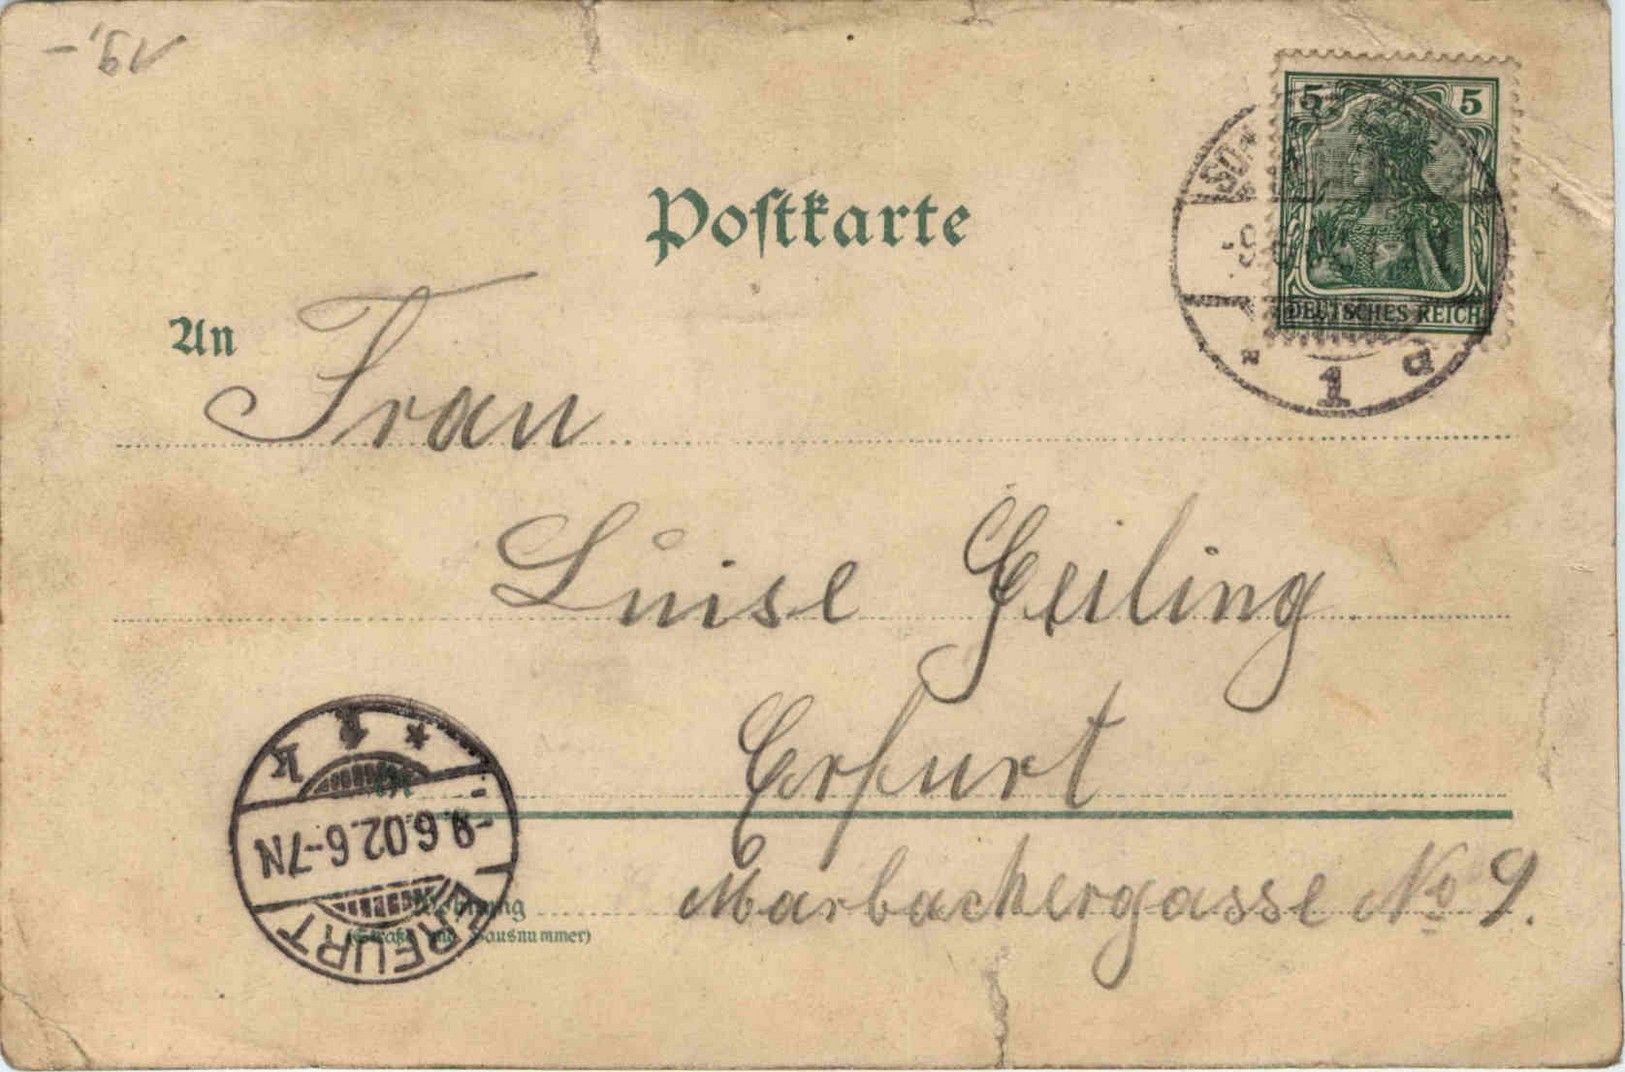 19,-
Postkarte
5 5
DEUTSCHES REICH
1 a
An
Frau
Luise Geiling
Erfurt
in
Marbachergasse No 9.
Wohnung
(Straße und Hausnummer)
ERFURT
-9.6.02.6-7N
* 1 k